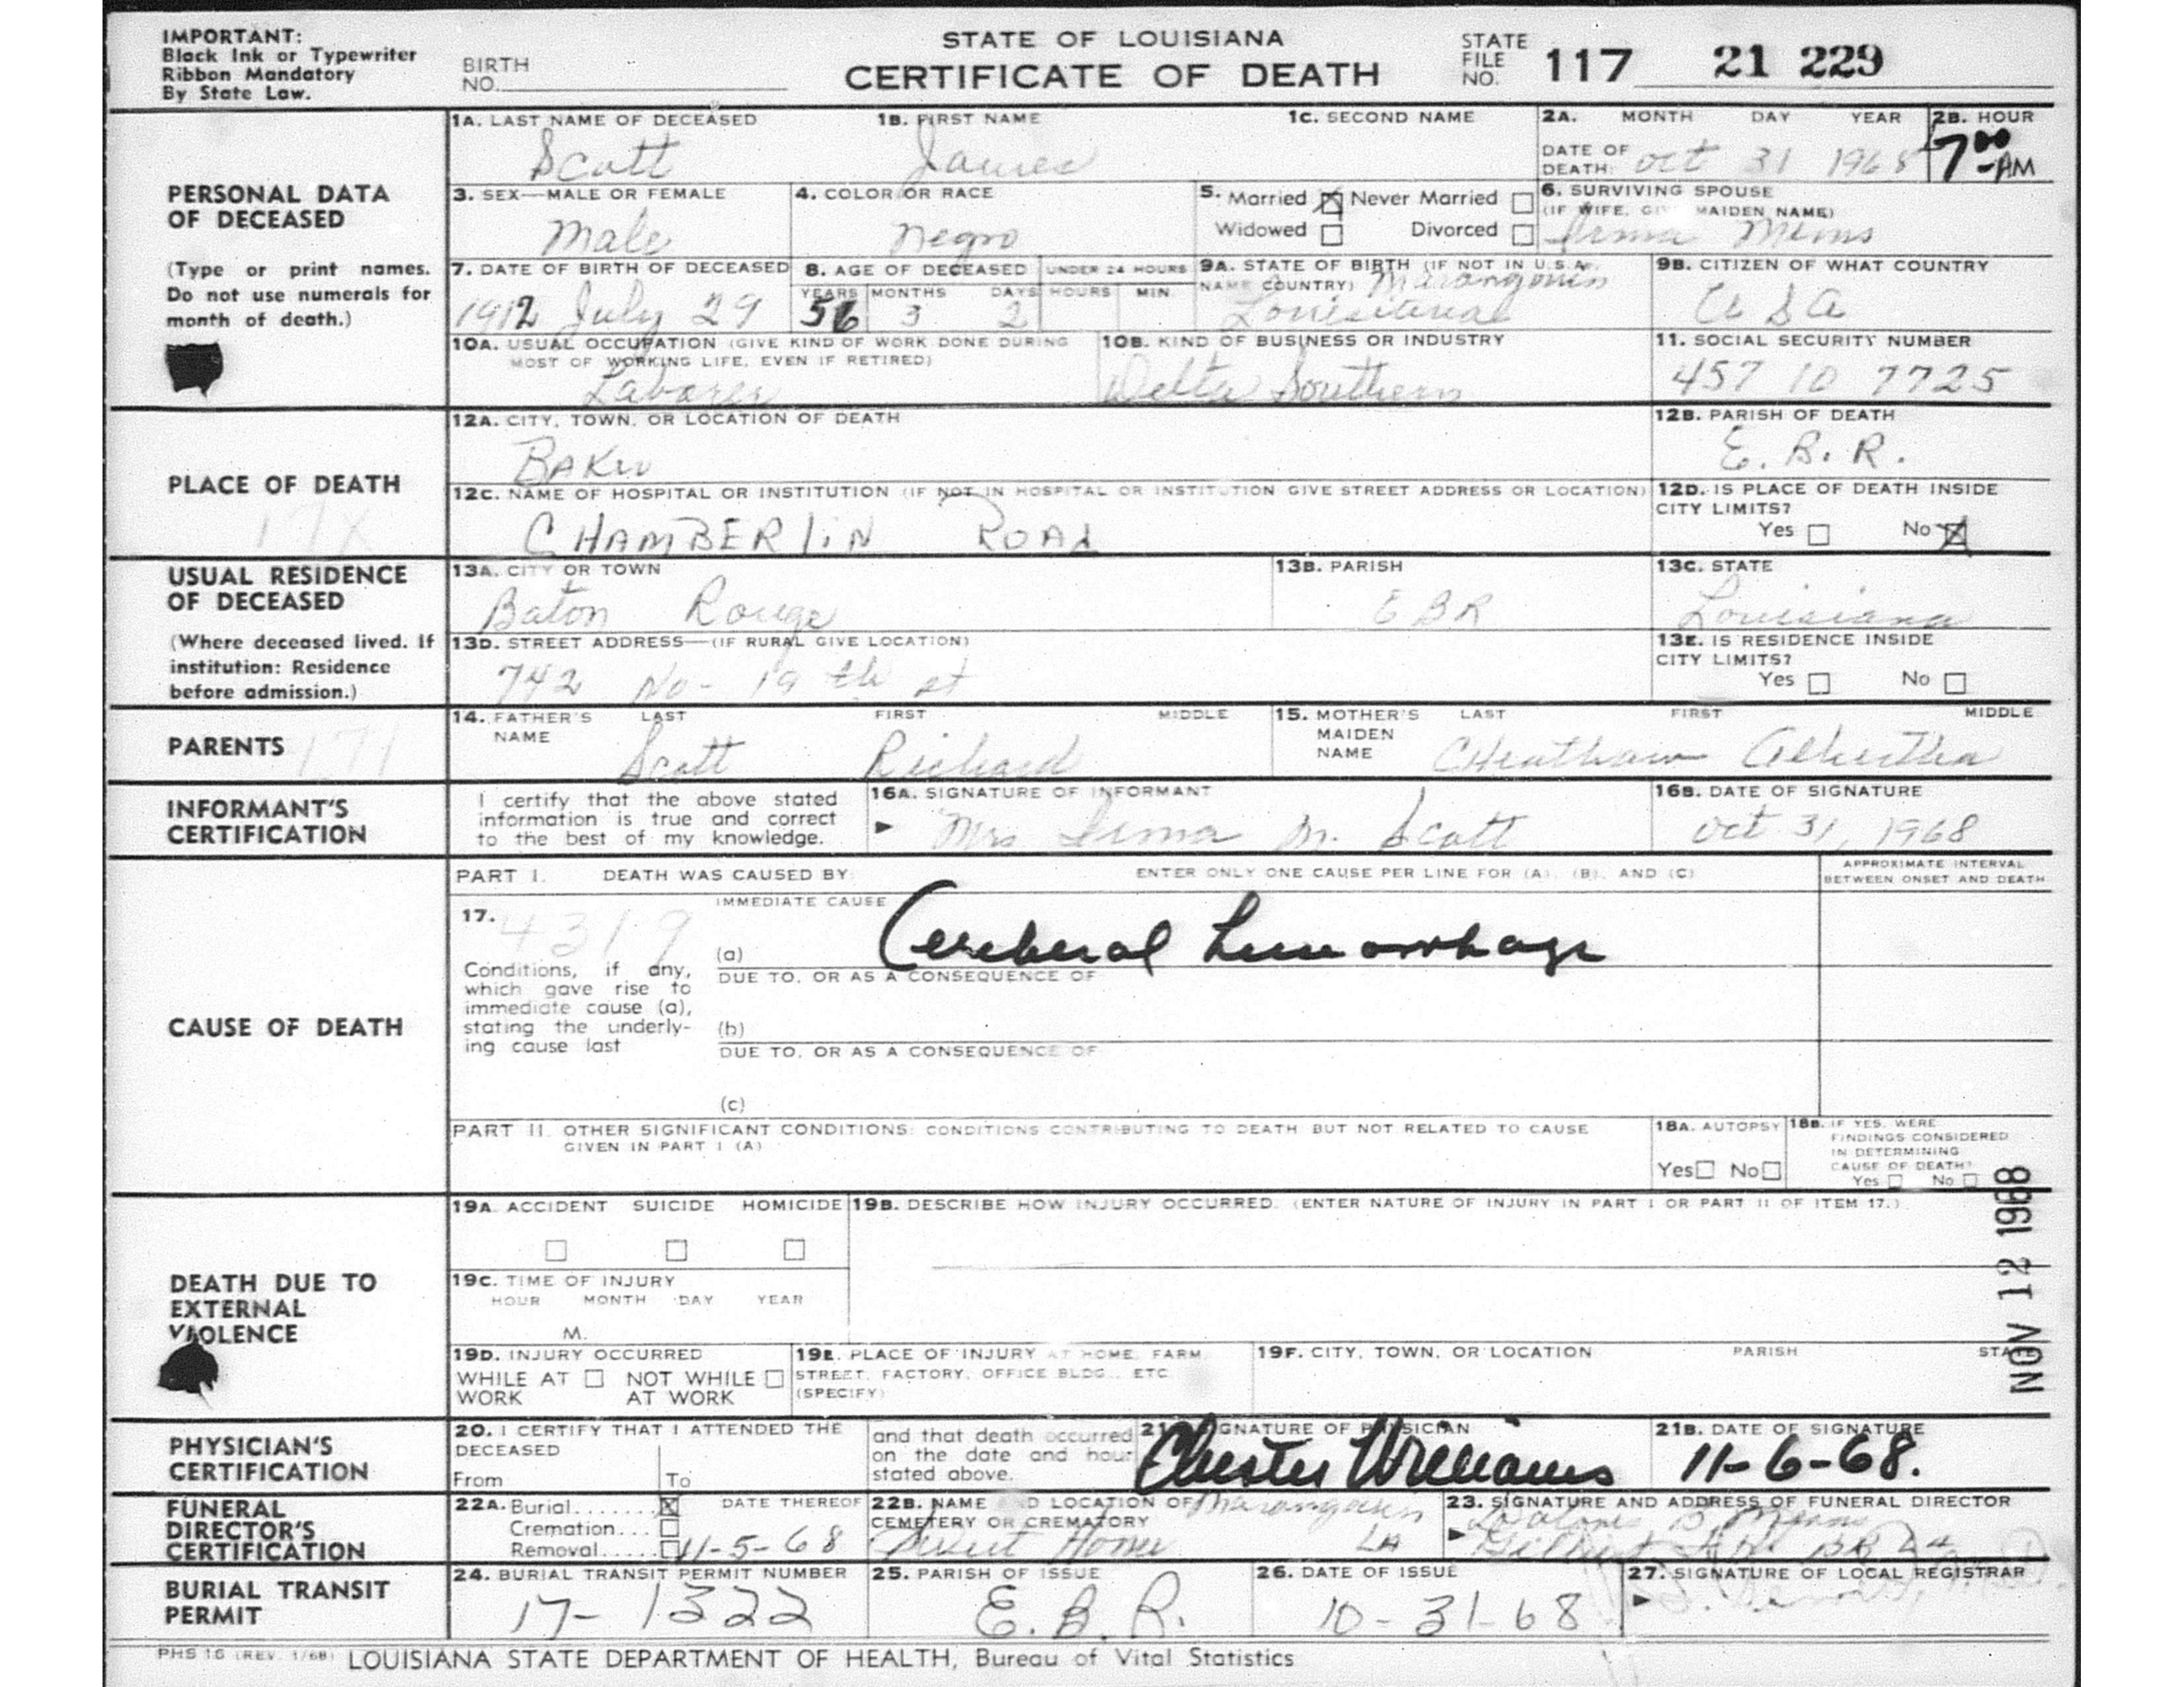 IMPORTANT:
Black Ink or Typewriter
Ribbon Mandatory
By State Law.
BIRTH
NO.
STATE OF LOUISIANA
CERTIFICATE OF DEATH
STATE
FILE
NO. 117 21 229
PERSONAL DATA
OF DECEASED
(Type or print names.
Do not use numerals for
month of death.)
1A. LAST NAME OF DECEASED 1B. FIRST NAME 1C. SECOND NAME
Scott James
2A. MONTH DAY YEAR
DATE OF
DEATH: Oct 31 1968
2B. HOUR
7 00 AM
3. SEX—MALE OR FEMALE
Male
4. COLOR OR RACE
Negro
5. Married Never Married
Widowed Divorced
6. SURVIVING SPOUSE
(IF WIFE, GIV MAIDEN NAME)
Irma Mims
7. DATE OF BIRTH OF DECEASED
1912 July 29
8. AGE OF DECEASED UNDER 24 HOURS
YEARS MONTHS DAYS HOURS MIN.
56 3 2
9A. STATE OF BIRTH (IF NOT IN U.S.A.
NAME COUNTRY) Marangouin
9B. CITIZEN OF WHAT COUNTRY
U S A
10A. USUAL OCCUPATION (GIVE KIND OF WORK DONE DURING
MOST OF WORKING LIFE, EVEN IF RETIRED)
Laborer
10B. KIND OF BUSINESS OR INDUSTRY
Delta Southern
11. SOCIAL SECURITY NUMBER
457 10 7725
PLACE OF DEATH
17X
12A. CITY, TOWN, OR LOCATION OF DEATH
BAKer
12B. PARISH OF DEATH
E. B. R.
12C. NAME OF HOSPITAL OR INSTITUTION (IF NOT IN HOSPITAL OR INSTITUTION GIVE STREET ADDRESS OR LOCATION)
CHAMBERLiN ROAd
12D. IS PLACE OF DEATH INSIDE
CITY LIMITS?
Yes No
USUAL RESIDENCE
OF DECEASED
(Where deceased lived. If
institution: Residence
before admission.)
13A. CITY OR TOWN
Baton Rouge
13B. PARISH
EBR
13C. STATE
Louisiana
13D. STREET ADDRESS—(IF RURAL GIVE LOCATION)
742 No- 19 th st
13E. IS RESIDENCE INSIDE
CITY LIMITS?
Yes No
PARENTS 171
14. FATHER'S LAST FIRST MIDDLE
NAME
Scott Richard
15. MOTHER'S LAST FIRST MIDDLE
MAIDEN
NAME Cheatham Albertha
INFORMANT'S
CERTIFICATION
I certify that the above stated
information is true and correct
to the best of my knowledge.
16A. SIGNATURE OF INFORMANT
Mrs Irma M. Scott
16B. DATE OF SIGNATURE
Oct 31, 1968
CAUSE OF DEATH
PART I. DEATH WAS CAUSED BY: ENTER ONLY ONE CAUSE PER LINE FOR (A), (B), AND (C)
APPROXIMATE INTERVAL
BETWEEN ONSET AND DEATH
17. 431.9
IMMEDIATE CAUSE
(a) Cerebral hemorrhage
DUE TO, OR AS A CONSEQUENCE OF
Conditions, if any,
which gave rise to
immediate cause (a),
stating the underly-
ing cause last
(b)
DUE TO, OR AS A CONSEQUENCE OF
(c)
PART II. OTHER SIGNIFICANT CONDITIONS: CONDITIONS CONTRIBUTING TO DEATH BUT NOT RELATED TO CAUSE
GIVEN IN PART I (A)
18A. AUTOPSY
Yes No
18B. IF YES, WERE
FINDINGS CONSIDERED
IN DETERMINING
CAUSE OF DEATH?
Yes No
NOV 12 1968
DEATH DUE TO
EXTERNAL
VIOLENCE
19A. ACCIDENT SUICIDE HOMICIDE
19B. DESCRIBE HOW INJURY OCCURRED. (ENTER NATURE OF INJURY IN PART I OR PART II OF ITEM 17.)
19C. TIME OF INJURY
HOUR MONTH DAY YEAR
M.
19D. INJURY OCCURRED
WHILE AT NOT WHILE
WORK AT WORK
19E. PLACE OF INJURY AT HOME, FARM,
STREET, FACTORY, OFFICE BLDG., ETC.
(SPECIFY)
19F. CITY, TOWN, OR LOCATION PARISH STATE
PHYSICIAN'S
CERTIFICATION
20. I CERTIFY THAT I ATTENDED THE
DECEASED
From To
and that death occurred
on the date and hour
stated above.
21 SIGNATURE OF PHYSICIAN
Chester Williams
21B. DATE OF SIGNATURE
11-6-68.
FUNERAL
DIRECTOR'S
CERTIFICATION
22A. Burial....... DATE THEREOF
Cremation...
Removal..... 11-5-68
22B. NAME D LOCATION OF Marangouin
CEMETERY OR CREMATORY
LA
23. SIGNATURE AND ADDRESS OF FUNERAL DIRECTOR
BURIAL TRANSIT
PERMIT
24. BURIAL TRANSIT PERMIT NUMBER
17-1322
25. PARISH OF ISSUE
E. B. R.
26. DATE OF ISSUE
10-31-68
27. SIGNATURE OF LOCAL REGISTRAR
PHS 16 (REV. 1/68) LOUISIANA STATE DEPARTMENT OF HEALTH, Bureau of Vital Statistics